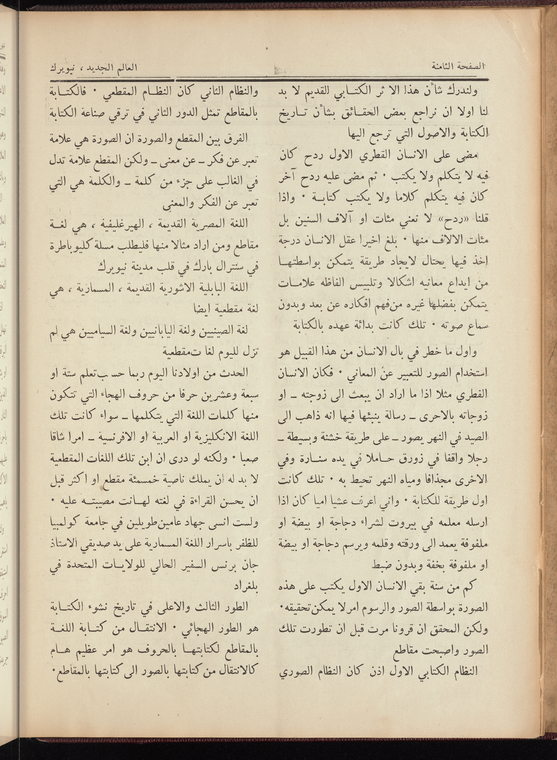 الصفحة الثامنة
العالم الجديد ، نيويرك
ولندرك شأن هذا الاثر الكتابي القديم لا بد
لنا اولا ان نراجع بعض الحقائق بشأن تاريخ
الكتابة والاصول التي ترجع اليها
مضى على الانسان الفطري الاول ردح كان
فيه لا يتكلم ولا يكتب . ثم مضى عليه ردح آخر
كان فيه يتكلم كلاما ولا يكتب كتابة . واذا
قلنا «ردح» لا نعني مئات او آلاف السنين بل
مئات الالاف منها . بلغ اخيرا عقل الانسان درجة
اخذ فيها يحتال لايجاد طريقة يتمكن بواسطتها
من ايداع معانيه اشكالا وتلبيس الفاظه علامات
يتمكن بفضلها غيره من فهم افكاره عن بعد وبدون
سماع صوته . تلك كانت بدائة عهده بالكتابة
واول ما خطر في بال الانسان من هذا القبيل هو
استخدام الصور للتعبير عن المعاني . فكان الانسان
الفطري مثلا اذا ما اراد ان يبعث الى زوجته ــ او
زوجاته بالاحرى ــ رسالة ينبئها فيها انه ذاهب الى
الصيد في النهر يصور ــ على طريقة خشنة وبسيطة ــ
رجلا واقفا في زورق حاملا في يده سنارة وفي
الاخرى مجذافا ومياه النهر تحيط به . تلك كانت
اول طريقة للكتابة . واني اعرف عشيا اميا كان اذا
ارسله معلمه في بيروت لشراء دجاجة او بيضة او
ملفوفة يعمد الى ورقته وقلمه ويرسم دجاجة او بيضة
او ملفوفة بخفة وبدون ضبط
كم من سنة بقي الانسان الاول يكتب على هذه
الصورة بواسطة الصور والرسوم امر لا يمكن تحقيقه .
ولكن المحقق ان قرونا مرت قبل ان تطورت تلك
الصور واصبحت مقاطع
النظام الكتابي الاول اذن كان النظام الصوري
والنظام الثاني كان النظام المقطعي . فالكتابة
بالمقاطع تمثل الدور الثاني في ترقي صناعة الكتابة
الفرق بين المقطع والصورة ان الصورة هي علامة
تعبر عن فكر ــ عن معنى ــ ولكن المقطع علامة تدل
في الغالب على جزء من كلمة ــ والكلمة هي التي
تعبر عن الفكر والمعنى
اللغة المصرية القديمة ، الهيرغليفية ، هي لغة
مقاطع ومن اراد مثالا منها فليطلب مسلة كليوباطرة
في سنترال بارك في قلب مدينة نيويرك
اللغة البابلية الاشورية القديمة ، المسمارية ، هي
لغة مقطعية ايضا
لغة الصينيين ولغة اليابانيين ولغة السياميين هي لم
تزل لليوم لغات مقطعية
الحدث من اولادنا اليوم ربما حسب تعلم ستة او
سبعة وعشرين حرفا من حروف الهجاء التي تتكون
منها كلمات اللغة التي يتكلمها ــ سواء كانت تلك
اللغة الانكليزية او العربية او الافرنسية ــ امرا شاقا
صعبا . ولكنه لو درى ان ابن تلك اللغات المقطعية
لا بد له ان يملك ناصية خمسمئة مقطع او اكثر قبل
ان يحسن القراءة في لغته لهانت مصيبته عليه .
ولست انسى جهاد عامين طويلين في جامعة كولمبيا
للظفر باسرار اللغة المسمارية على يد صديقي الاستاذ
جان برنس السفير الحالي للولايات المتحدة في
بلغراد
الطور الثالث والاعلى في تاريخ نشوء الكتابة
هو الطور الهجائي . الانتقال من كتابة اللغة
بالمقاطع لكتابتها بالحروف هو امر عظيم هام
كالانتقال من كتابتها بالصور الى كتابتها بالمقاطع .